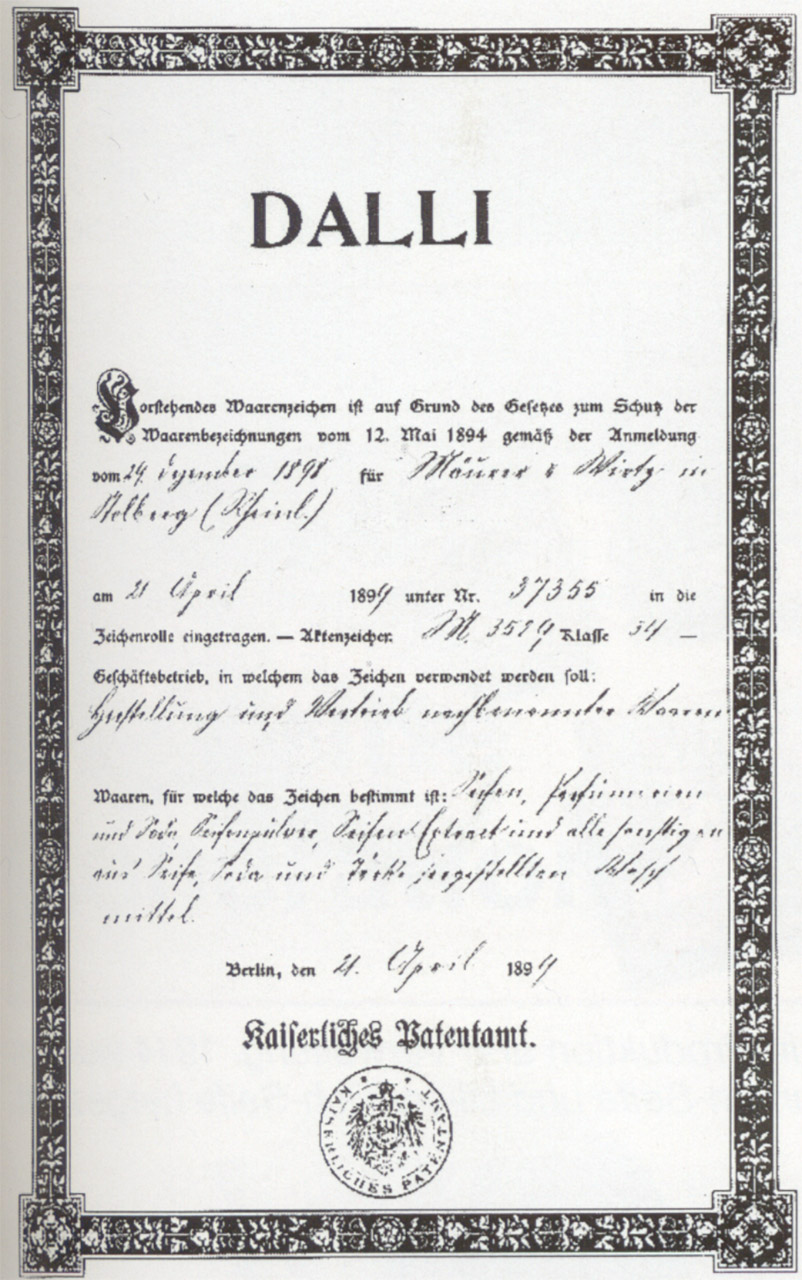 DALLI
Vorstehendes Waarenzeichen ist auf Grund des Gesetzes zum Schutz der
Waarenbezeichnungen vom 12. Mai 1894 gemäß der Anmeldung
vom 29. Dezember 1898 für Mäurer & Wirtz in
Stolberg (Rheinl.)
am 21 April 1899 unter Nr. 37355 in die
Zeichenrolle eingetragen. — Aktenzeichen M. 3529 Klasse 34 —
Geschäftsbetrieb, in welchem das Zeichen verwendet werden soll:
Herstellung und Vertrieb nachbenannter Waaren
Waaren, für welche das Zeichen bestimmt ist: Seifen, Parfümerien
und Soda, Seifenpulver, Seifen Extract und alle sonstigen
aus Seife, Soda und Stärke hergestellten Wasch
mittel.
Berlin, den 21. April 1899
Kaiserliches Patentamt.
KAISERLICHES PATENTAMT